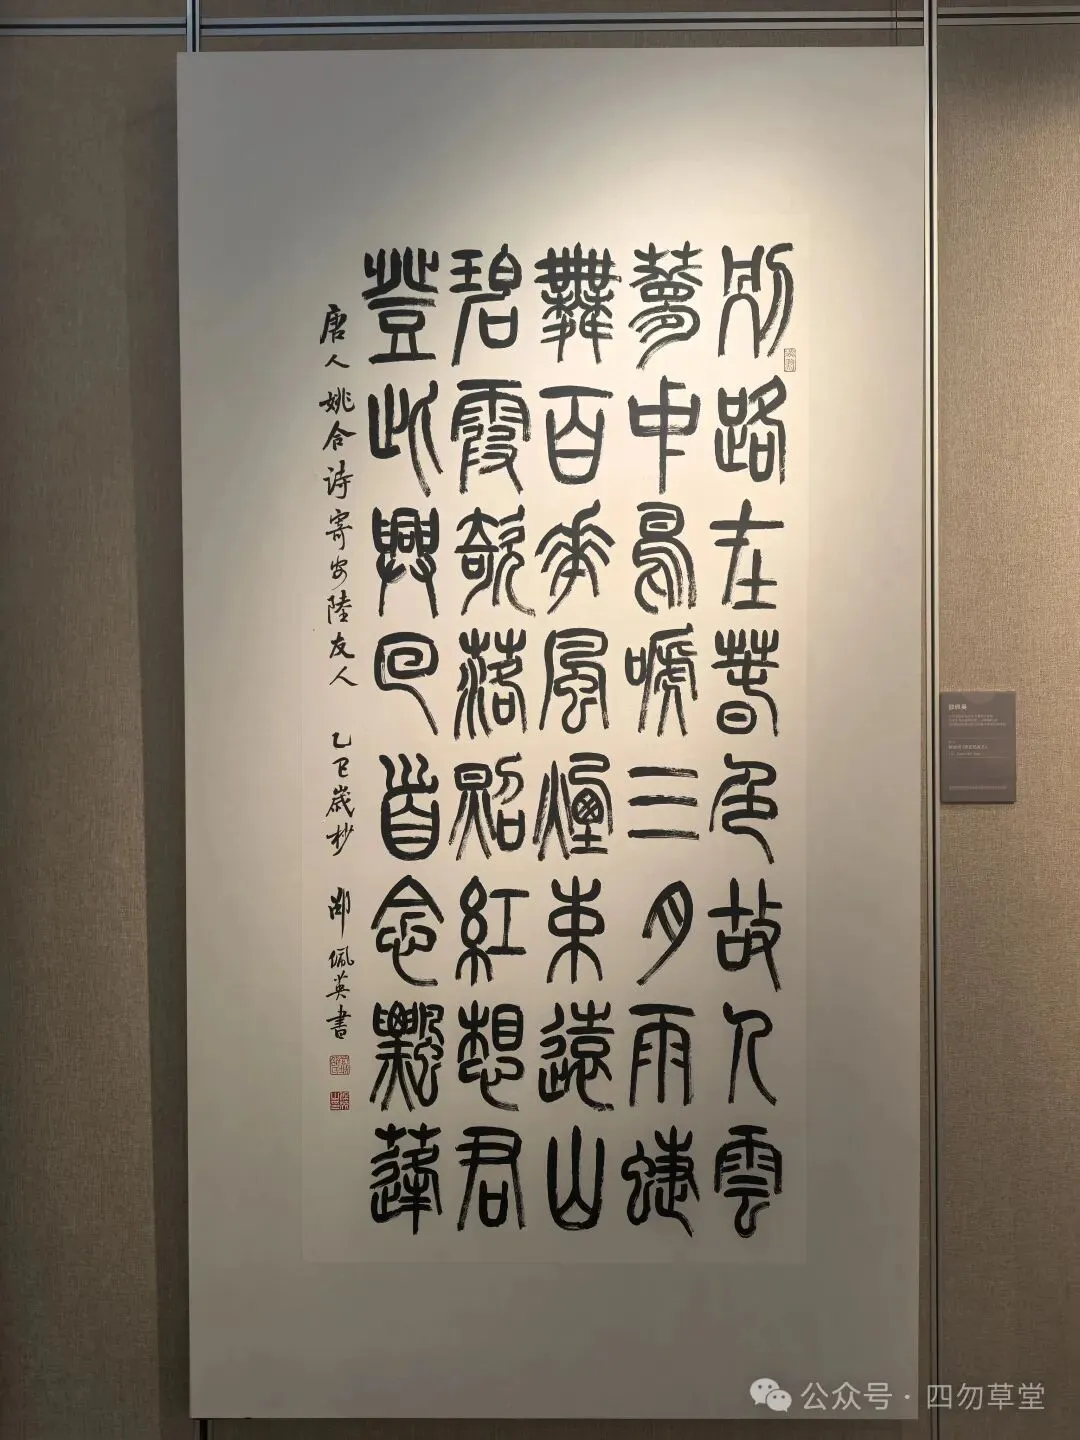 別路在春色故人雲
夢中鳥嗁三月雨蜨
舞百華風煙束遠山
碧霞攲落照紅想君
登此興回首念飄蓬
唐人姚合詩寄安陸友人 乙巳歲杪 佩英書
公众号·四勿草堂